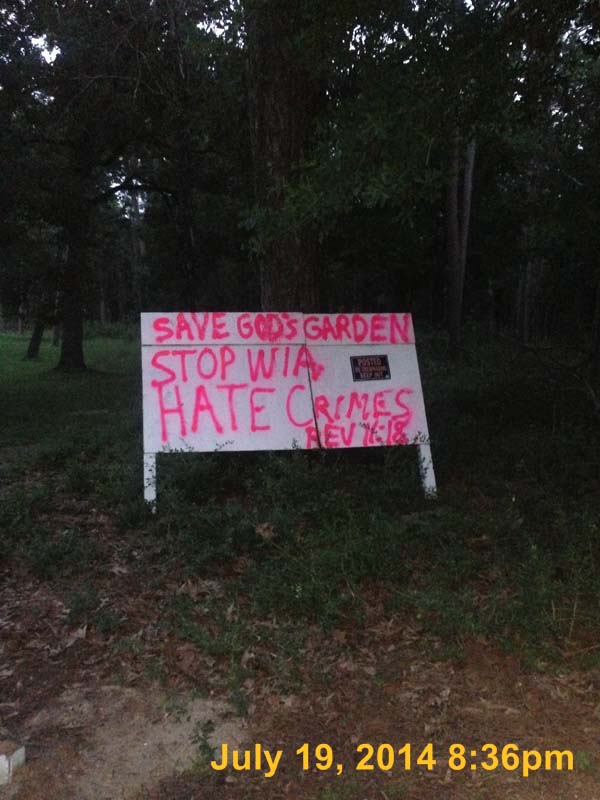 SAVE GOD'S GARDEN
STOP WIA
POSTED
NO TRESPASSING
KEEP OUT
HATE CRIMES
REV 11:18
July 19, 2014 8:36pm